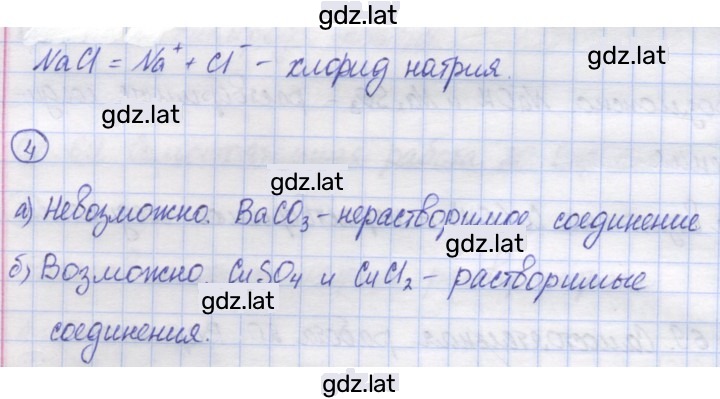 gdz.lat
NaCl = Na⁺ + Cl⁻ - хлорид натрия.
gdz.lat
4
gdz.lat
а) Невозможно. BaCO₃ - нерастворимое соединение
gdz.lat
б) Возможно. CuSO₄ и CuCl₂ - растворимые
gdz.lat
соединения.
gdz.lat